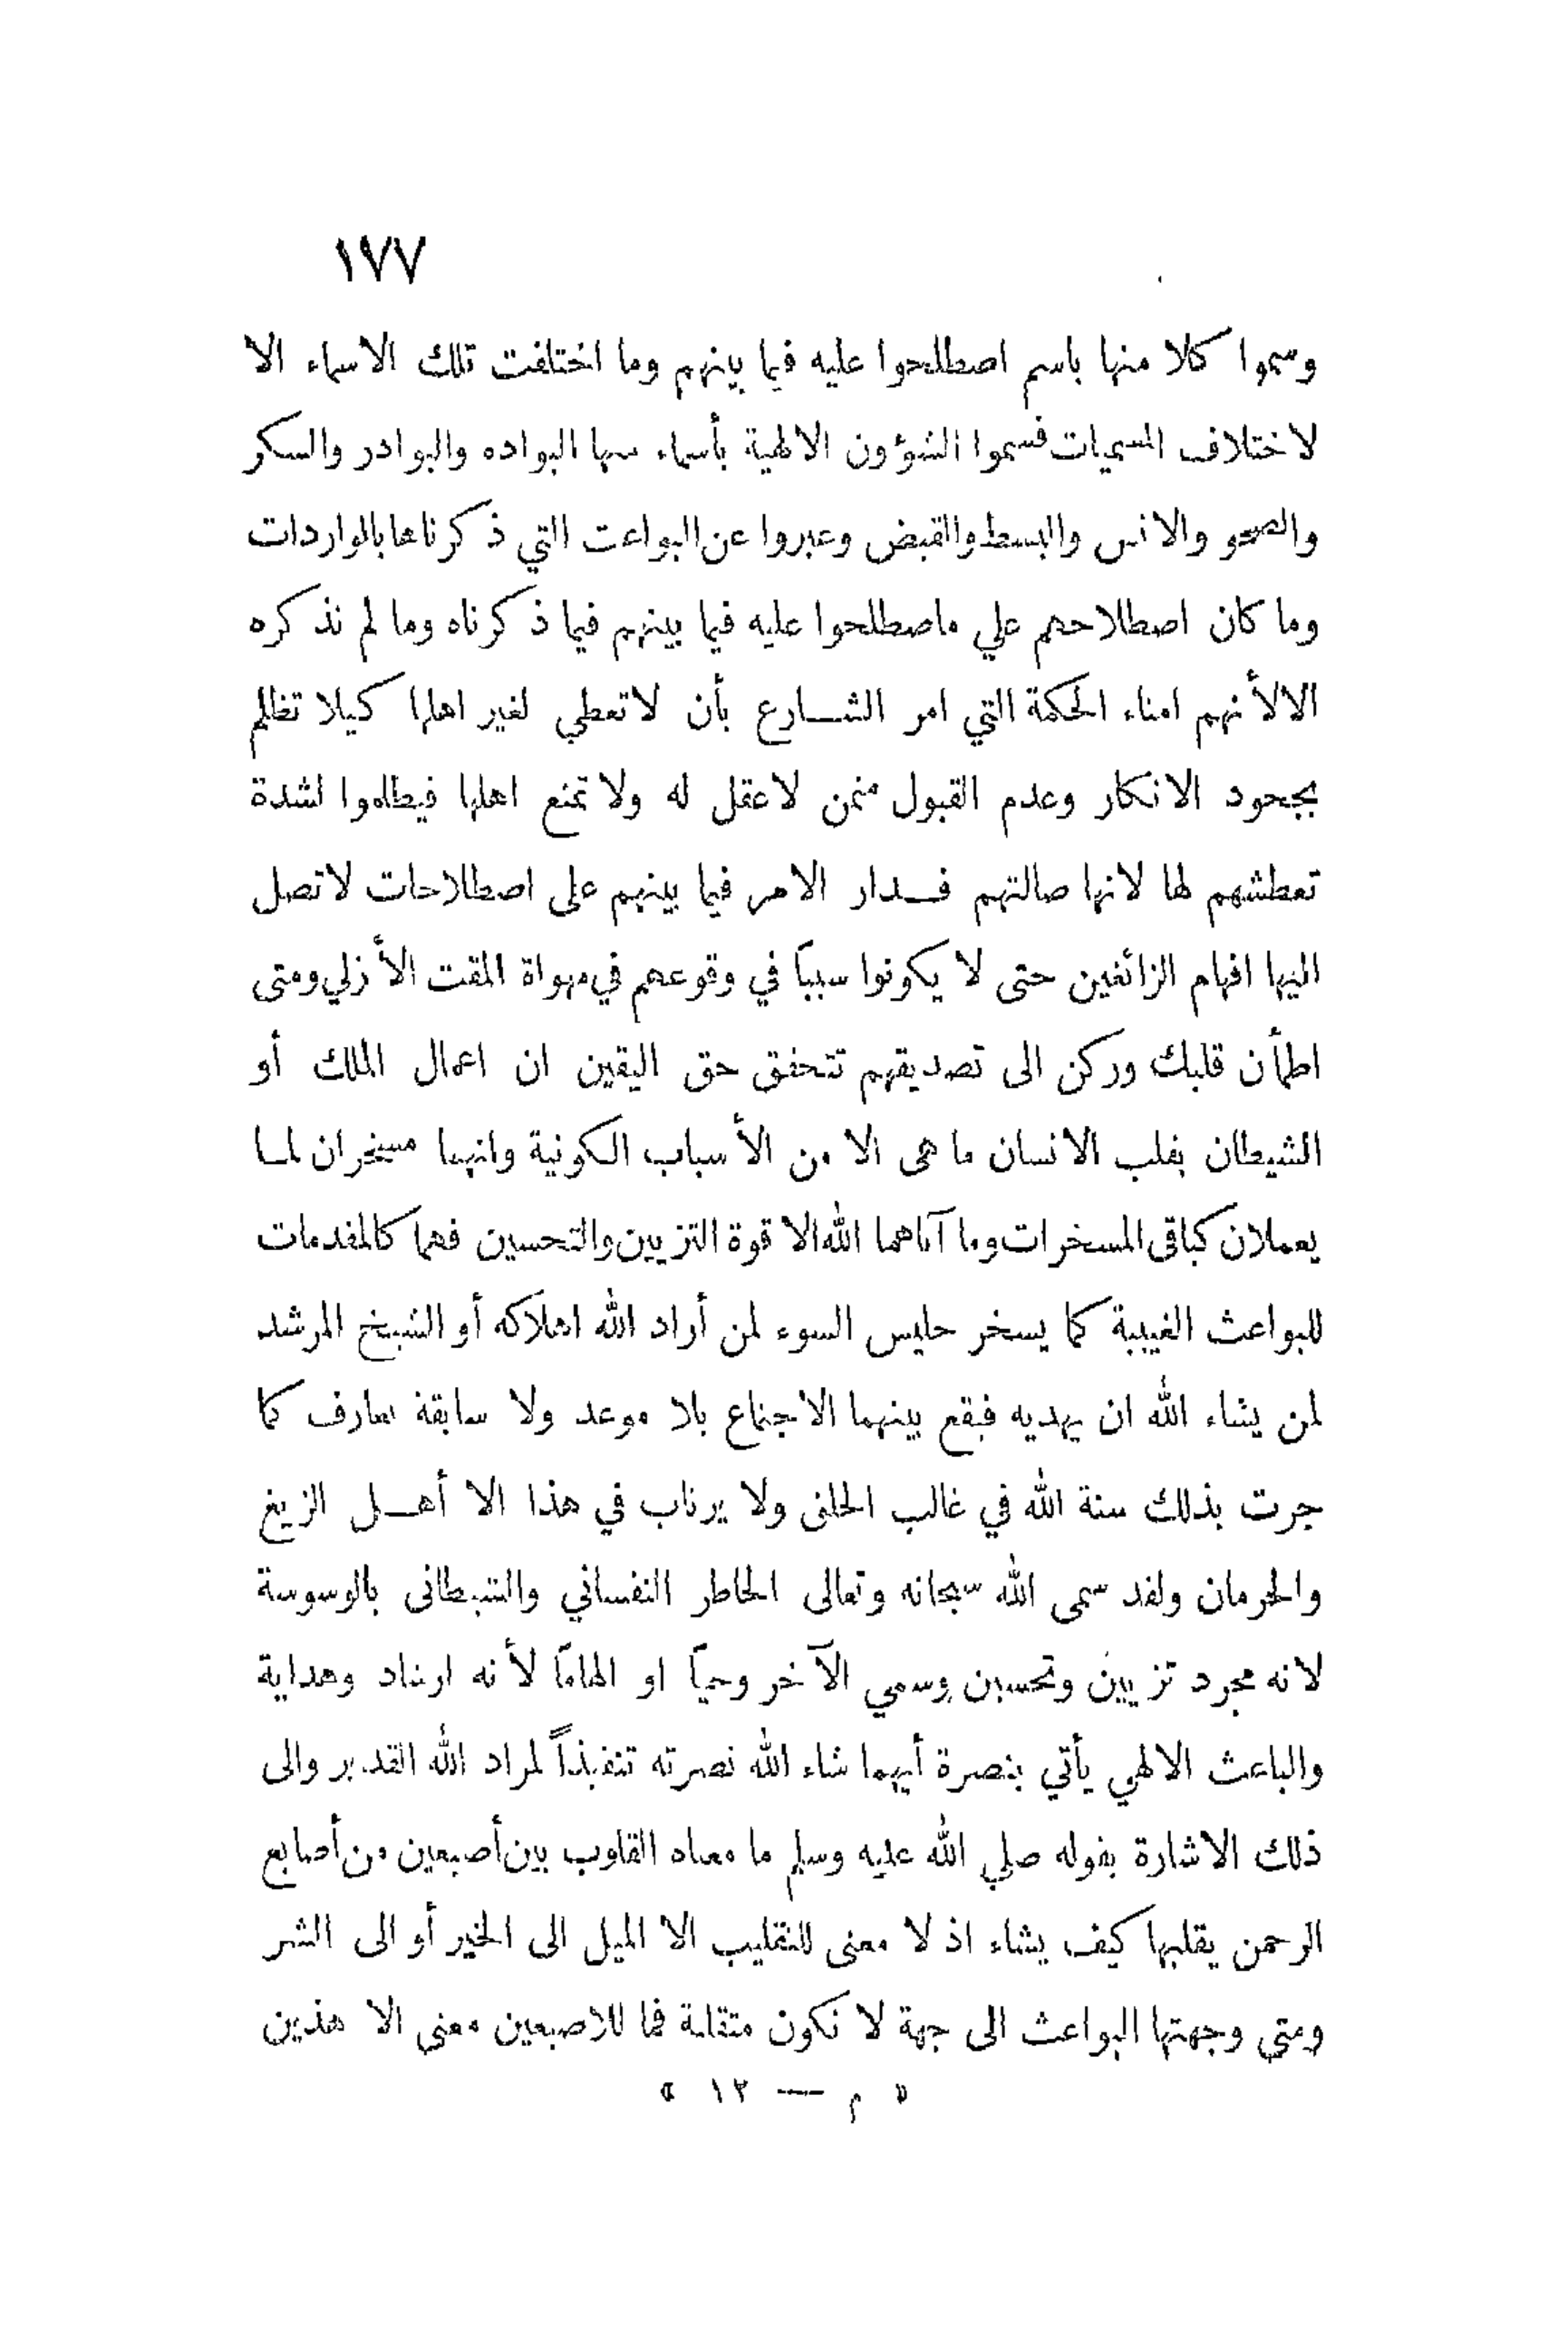 ١٧٧
وسموا كلا منها باسم اصطلحوا عليه فيما بينهم وما اختلفت تلك الاسماء الا
لاختلاف المسميات فسموا الشؤون الالهية بأسماء سها البواده والبوادر والسكر
والصحو والانس والبسط والقبض وعبروا عن البواعث التي ذكرناها بالواردات
وما كان اصطلاحهم علي ماصطلحوا عليه فيما بينهم فيما ذكرناه وما لم نذكره
الالأنهم امناء الحكمة التي امر الشارع بأن لاتعطي لغير اهلها كيلا تظلم
بجحود الانكار وعدم القبول ممن لاعقل له ولا تمنع اهلها فيظلموا لشدة
تعطشهم لها لانها ضالتهم فدار الامر فيما بينهم على اصطلاحات لاتصل
اليها افهام الزائغين حتى لا يكونوا سبباً في وقوعهم في مهواة المقت الأزلي ومتى
اطمأن قلبك وركن الى تصديقهم تتحقق حق اليقين ان اعمال الملك أو
الشيطان بقلب الانسان ما هى الا من الأسباب الكونية وانهما مسخران لما
يعملان كباقى المسخرات وما آتاهما الله الا قوة التزيين والتحسين فهما كالمقدمات
للبواعث الغيبية كما يسخر جليس السوء لمن أراد الله اهلاكه أو الشيخ المرشد
لمن يشاء الله ان يهديه فيقع بينهما الاجتماع بلا موعد ولا سابقة تعارف كما
جرت بذلك سنة الله في غالب الخلق ولا يرتاب في هذا الا أهل الزيغ
والحرمان ولقد سمى الله سبحانه وتعالى الخاطر النفساني والشيطانى بالوسوسة
لانه مجرد تزيين وتحسين وسمي الآخر وحياً او الهاماً لأنه ارشاد وهداية
والباعث الالهي يأتي بنصرة أيهما شاء الله نصرته تنفيذاً لمراد الله القدير والى
ذلك الاشارة بقوله صلي الله عليه وسلم ما معناه القلوب بين أصبعين من أصابع
الرحمن يقلبها كيف يشاء اذ لا معنى للتقليب الا الميل الى الخير أو الى الشر
ومتى وجهتها البواعث الى جهة لا تكون متقلبة فما للاصبعين معنى الا هذين
« م — ١٢ »